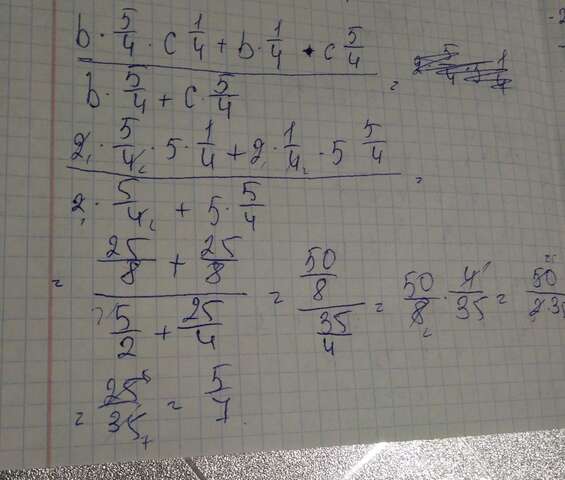 b · 5/4 · c 1/4 + b · 1/4 · c 5/4
b · 5/4 + c · 5/4 =
2 · 5/4 · 5 · 1/4 + 2 · 1/4 · 5 5/4
2 · 5/4 + 5 · 5/4 =
= 25/8 + 25/8 = 50/8 = 50/8 · 4/35 = 50/2·35
5/2 + 25/4 35/4
= 25/35 = 5/7